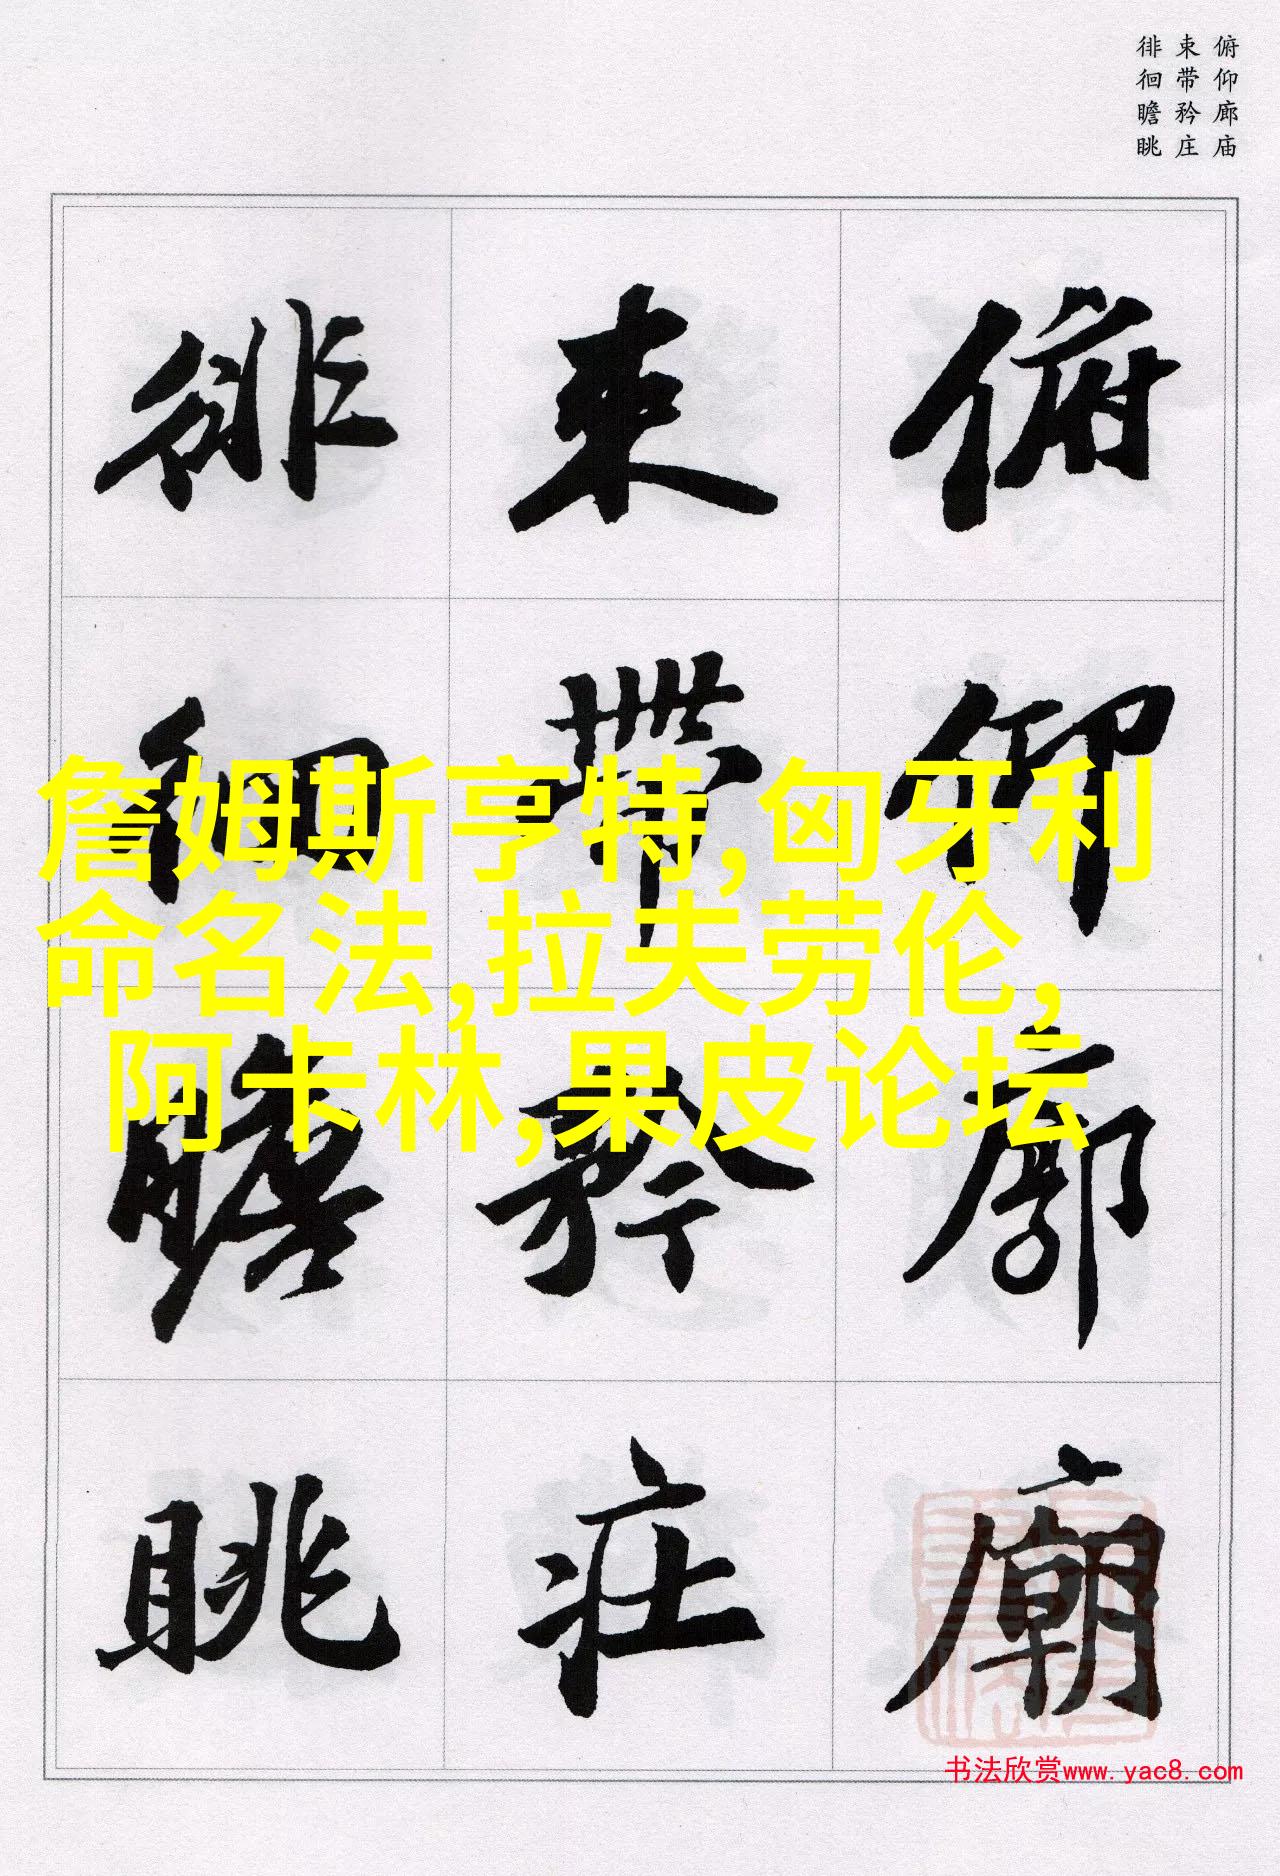 俯仰廊庙
束带矜庄
徘徊瞻眺
俯仰廊廟
束帶矜莊
徘徊瞻眺
詹姆斯亨特,匈牙利
命名法,拉夫劳伦,
阿卡林,果皮论坛
书法欣赏www.yac8.com